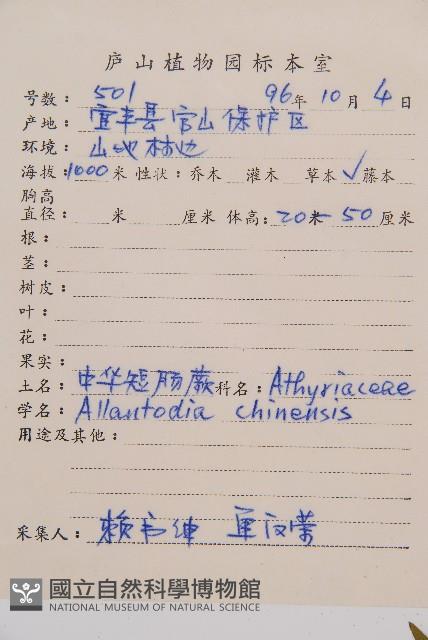 庐山植物园标本室
号数：501 96年10月4日
产地：宜丰县官山保护区
环境：山地林边
海拔：1000米 性状：乔木 灌木 草本✓藤本
胸高
直径： 米 厘米 体高：20米 50厘米
根：
茎：
树皮：
叶：
花：
果实：
土名：中华短肠蕨 科名：Athyriaceae
学名：Allantodia chinensis
用途及其他：
采集人：赖书绅
國立自然科學博物館
NATIONAL MUSEUM OF NATURAL SCIENCE